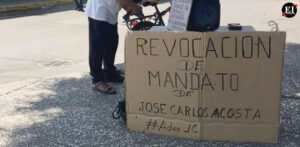 EI
REVOCACIÓN
DE
MANDATO
DE
JOSE CARLOS ACOSTA
#Adios_JC